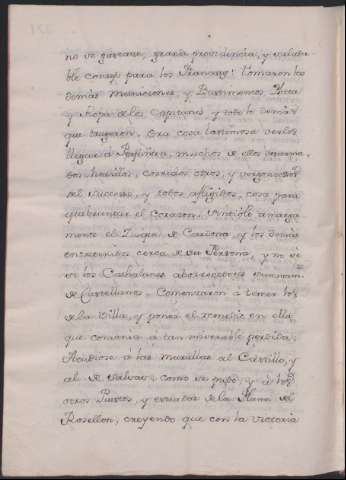 no se ganase, gracia providencia, y saluda-
ble consejo para los Franceses: tomaron los
demás municiones, y Bastimentos Plata
y Ropa de los Capitanes y todo lo demás
que trugeron. Era cosa lastimosa verlos
llegar a Perpiñan, muchos de ellos
heridos, corridos otros, y
del suceso, y todos afligidos, cosa para
quebrantar el corazon. Sintiólo amarga
mente el Duque de Cardona, y los demas
cerca de su Persona, y no
se los Cathalanes aborrecedores
de Castellanos. Comenzaron á temer los
de la Villa, y poner el remedio en ella
que convenia á tan miserable perdida.
Acudiose á las murallas al Castillo, y
al de Salsas, como se pudo, y á los
otros Puestos, y entradas de la Plana del
Rosellon, creyendo que con la victoria